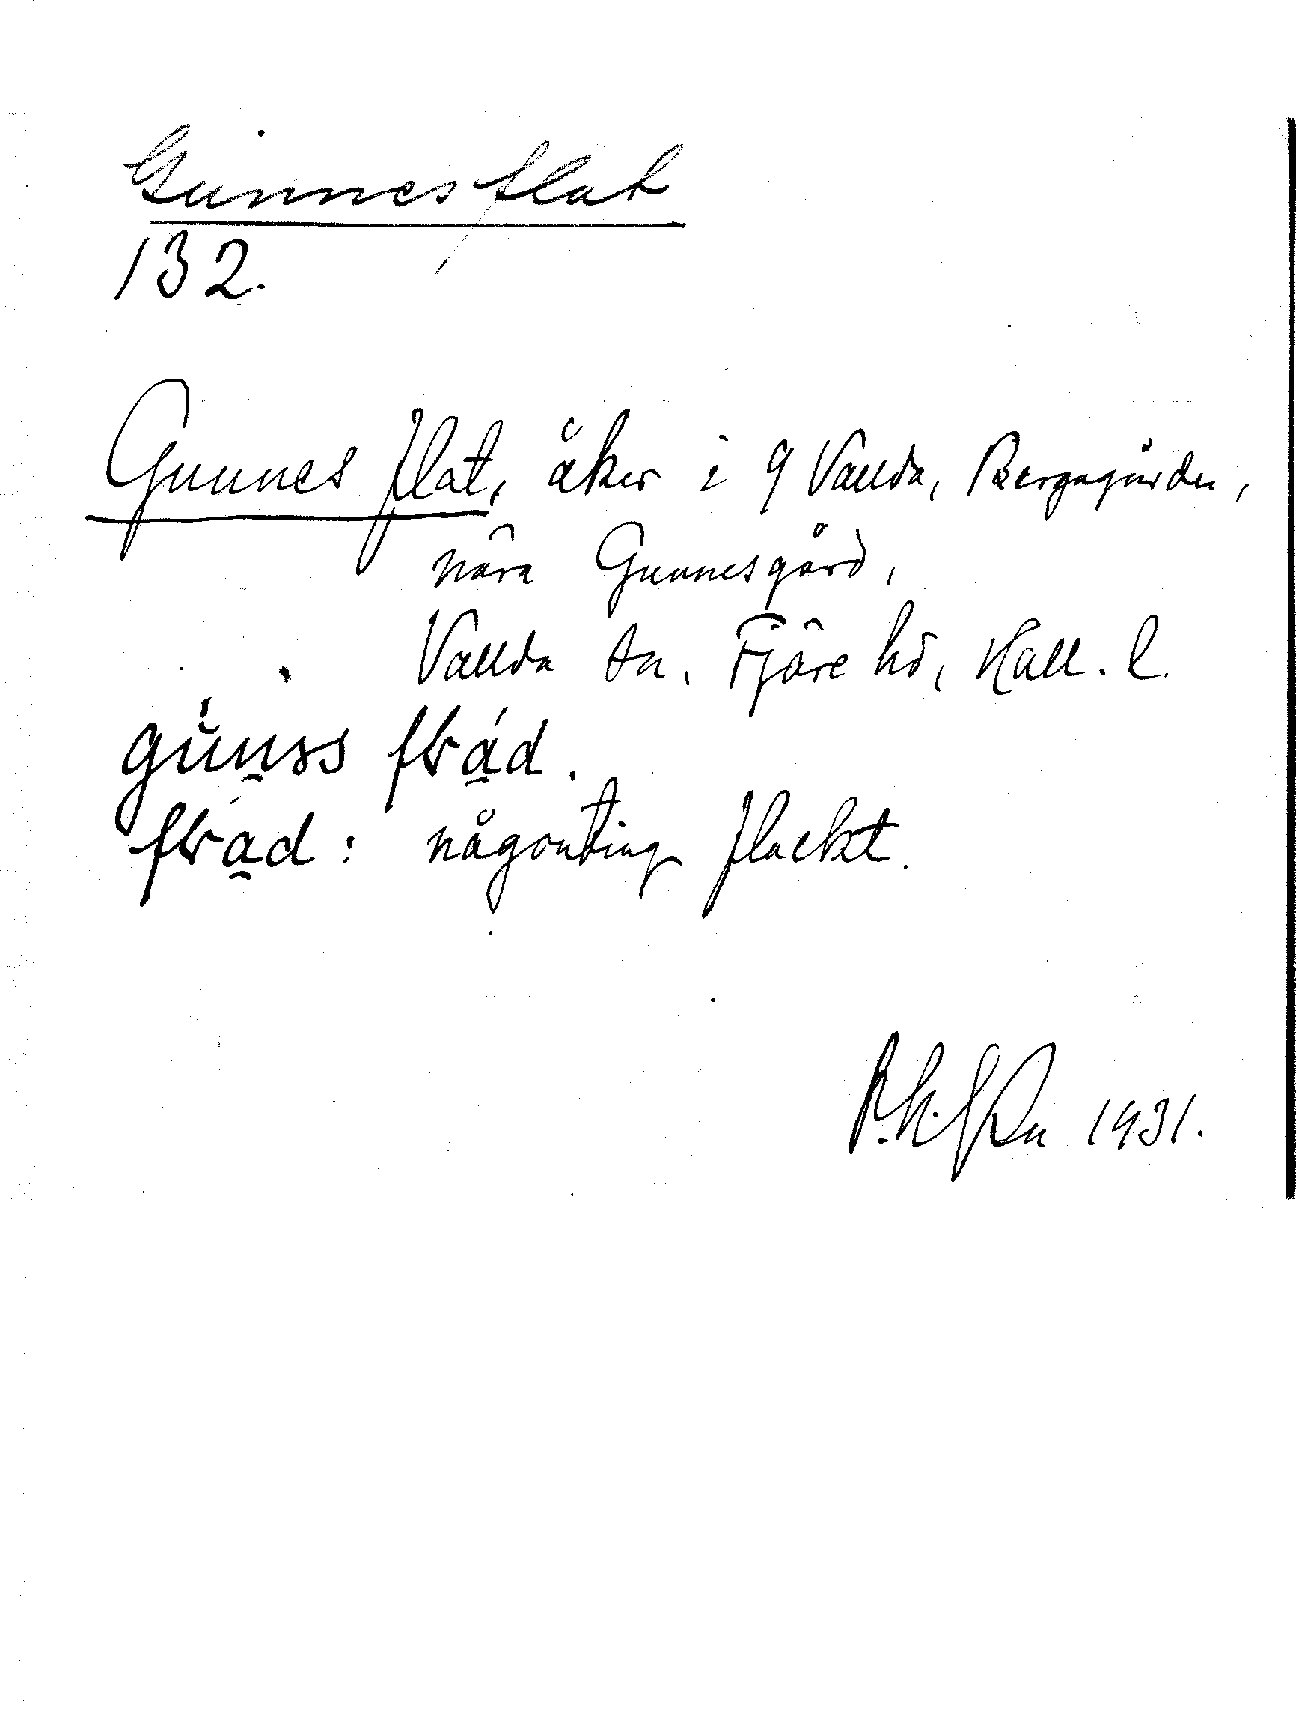 Gunnesflat
132.
Gunnes flat, åker i 9 Vallda, Bergagården,
nära Gunnesgård,
Vallda sn, Fjäre hd, Hall. l.
någonting flackt.
1931.